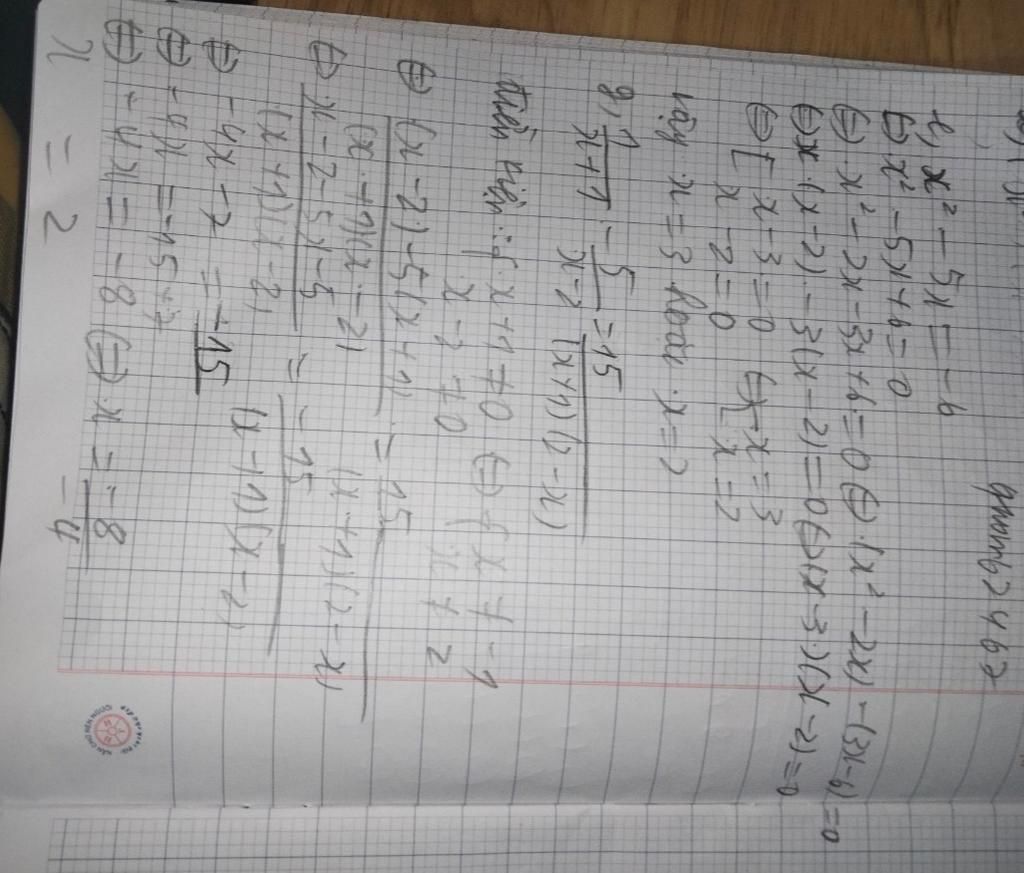 e) x² - 5x = -6
⇔ x² - 5x + 6 = 0
⇔ x² - 2x - 3x + 6 = 0 ⇔ (x² - 2x) - (3x - 6) = 0
⇔ x(x - 2) - 3(x - 2) = 0 ⇔ (x - 3)(x - 2) = 0
⇔ [ x - 3 = 0 ⇔ [ x = 3
x - 2 = 0 x = 2
vậy x = 3 hoặc x = 2
g) 1/(x+1) - 5/(x-2) = 15/((x+1)(2-x))
Điều kiện: { x + 1 ≠ 0 ⇔ { x ≠ -1
x - 2 ≠ 0 x ≠ 2
⇔ ((x - 2) - 5(x + 1))/((x + 1)(x - 2)) = 15/((x + 1)(2 - x))
⇔ (x - 2 - 5x - 5)/((x + 1)(x - 2)) = -15/((x - 1)(x - 2))
⇔ -4x - 7 = -15
⇔ -4x = -15 + 7
⇔ -4x = -8 ⇔ x = -8/-4
x = 2